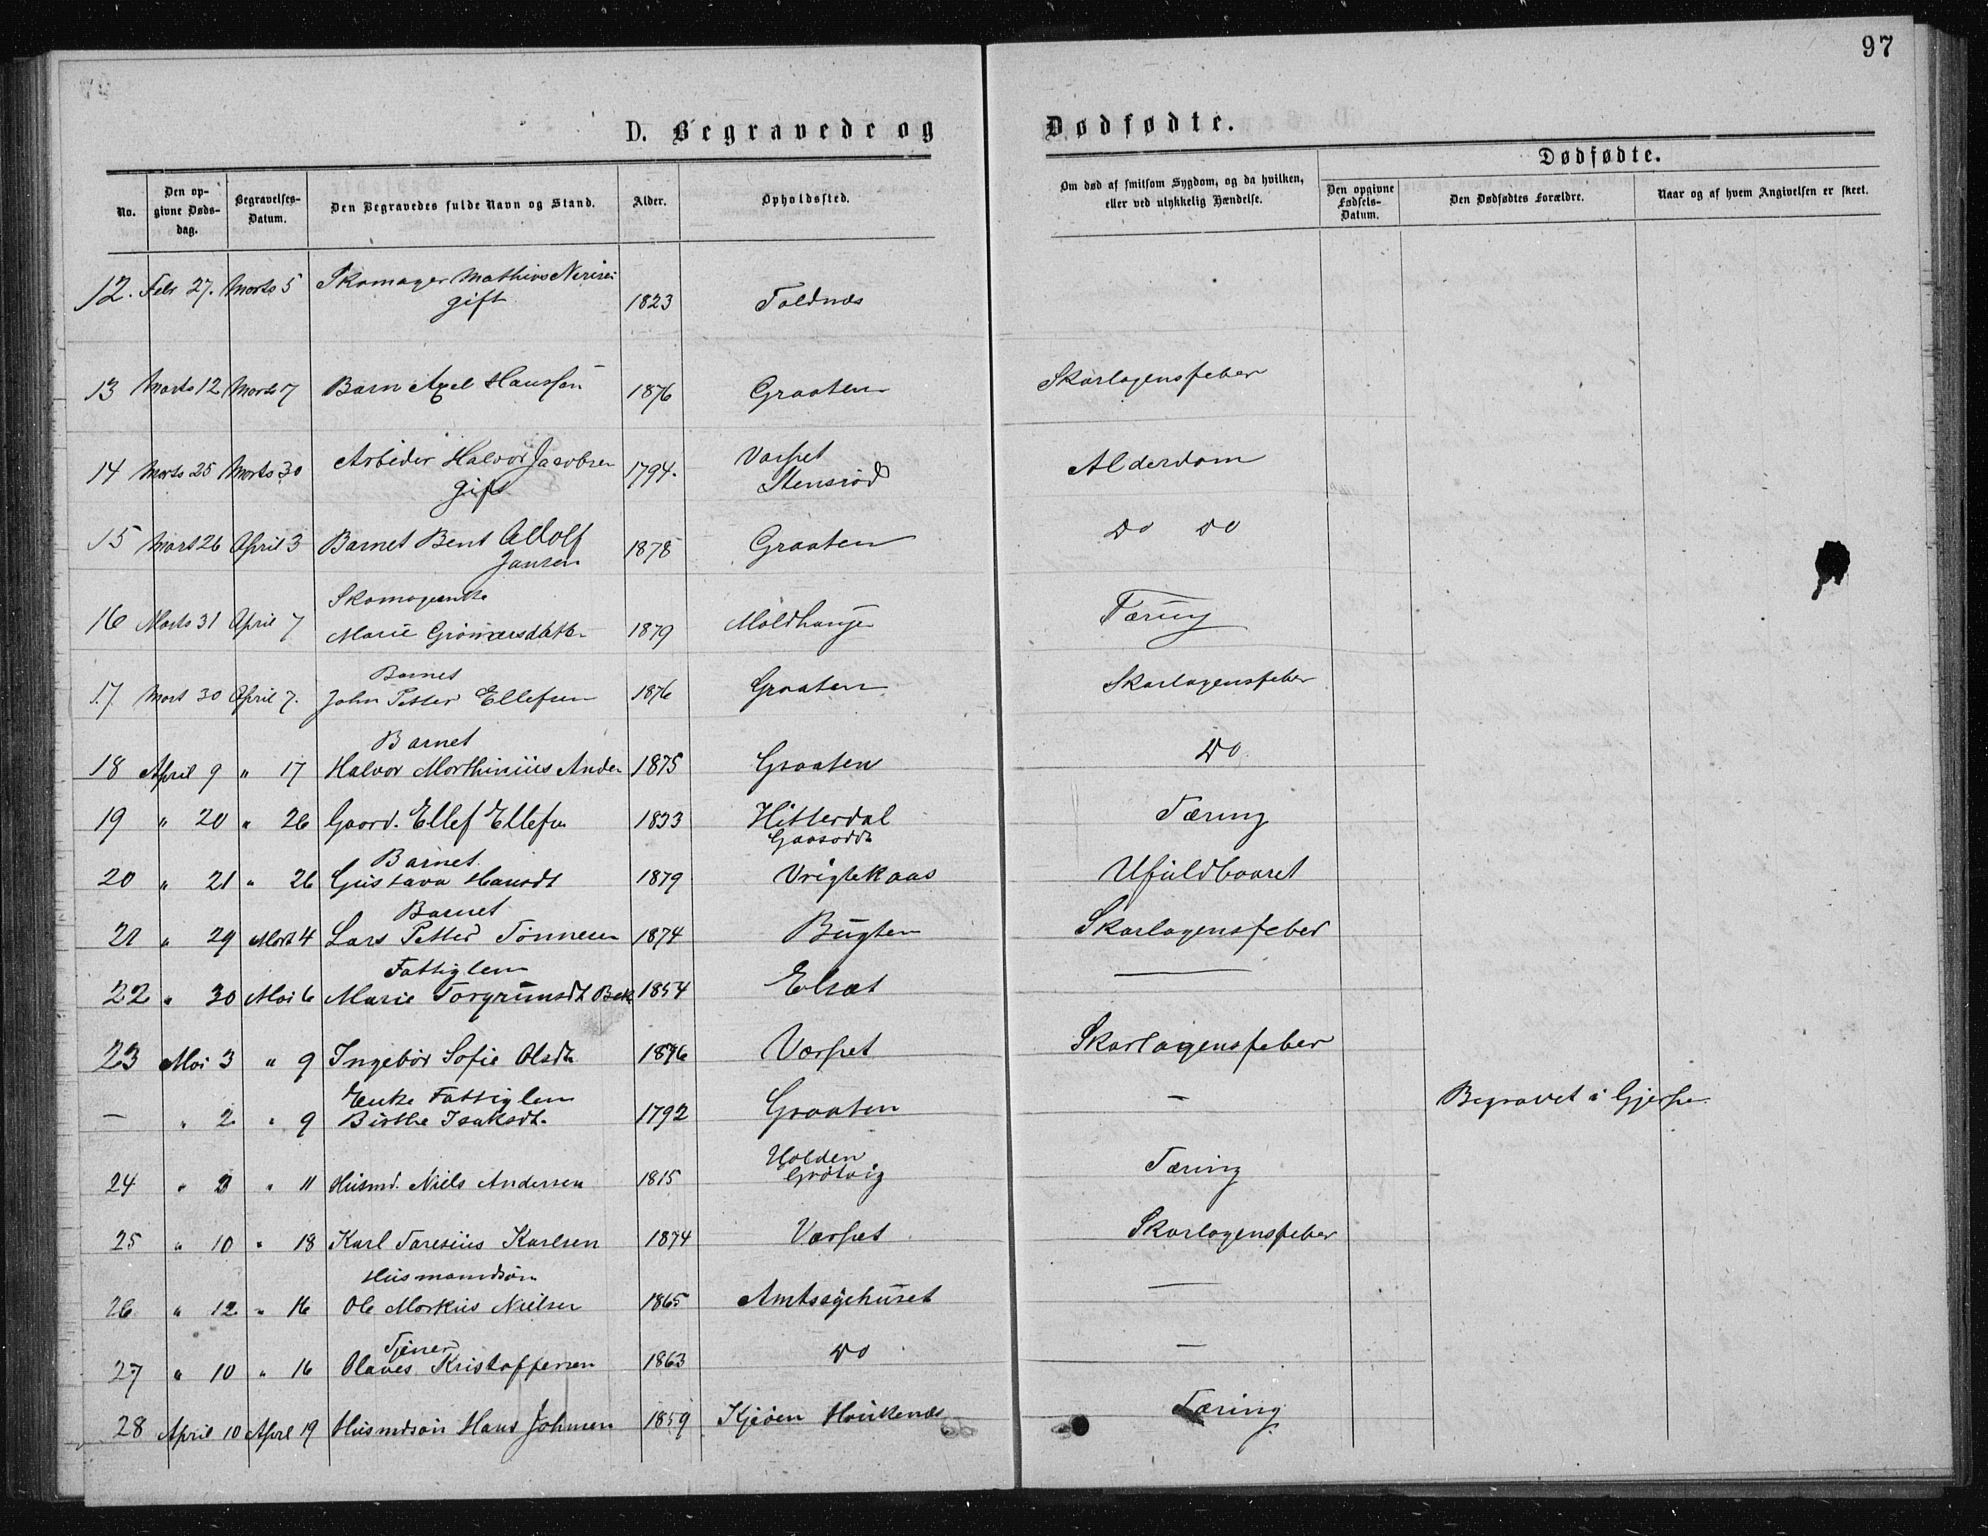 97
D. Begravede og Dødfødte.
Dødfødte.
No. Den opgivne Dødsdag. Begravelses-Datum. Den Begravedes fulde Navn og Stand. Alder. Opholdssted. Om død af smitsom Sygdom, og da hvilken, eller ved ulykkelig Hændelse. Den opgivne Fødsels-Datum. Den Dødfødtes Forældre. Naar og af hvem Angivelsen er skeet.
12. Febr 27. Marts 5 Skomager Mathias
gift 1823 Foldnæs
13 Marts 12 Marts 7 Barn Axel Hanssen 1876 Graaten Skarlagensfeber
14 Marts 25 Marts 30 Arbeider Halvor Jacobsen 1794. Vorpet Alderdom
gift Stensrød
15 Mart 26 April 3 Barnet Bent Adolf 1878 Graaten Do Do
Jansen
Skomagerenke
16 Marts 31 April 7 Marie 1879 Moldhauge Tæring
Barnet
17. Mart 30 April 7. John Petter Ellefsen 1876 Graaten Skarlagensfeber
Barnet
18 April 9 " 17 Halvor Morthinius Ander 1875 Graaten Do
19 " 20 " 26 Gaard. Ellef Ellefsen 1833 Hitterdal Tæring
Barnet
20 " 21 " 26 Gustava Hansdt 1879 Vrigtekaas Ufuldbaaret
Barnet
21 " 29 4 Lars Petter Tønnesen 1874 Bugten Skarlagensfeber
Fattiglem
22 " 30 Mai 6 Marie Torgrimsdt Bek 1854 Elsæt —
23 Mai 3 " 9 Ingebor Sofie Olsdt 1876 Værpet Skarlagensfeber
Enke Fattiglem
— " 2 " 9 Birthe Isaksdt. 1792 Graaten — Begravet i Gjerpe.
24 " 3 " 11 Husmd. Niels Andersen 1815 Holden Tæring
Grotvig
25 " 10 " 18 Karl Taresius Karlsen 1874 Værpet Skarlagensfeber
Husmandsøn
26 " 12 " 16 Ole Morkus Nielsen 1865 Amtssygehuset —
Tjener
27 " 10 " 16 Olaves Kristoffersen 1863 Do —
28 April 10 April 19 Husmdsøn Hans Johnsen 1859 Tæring